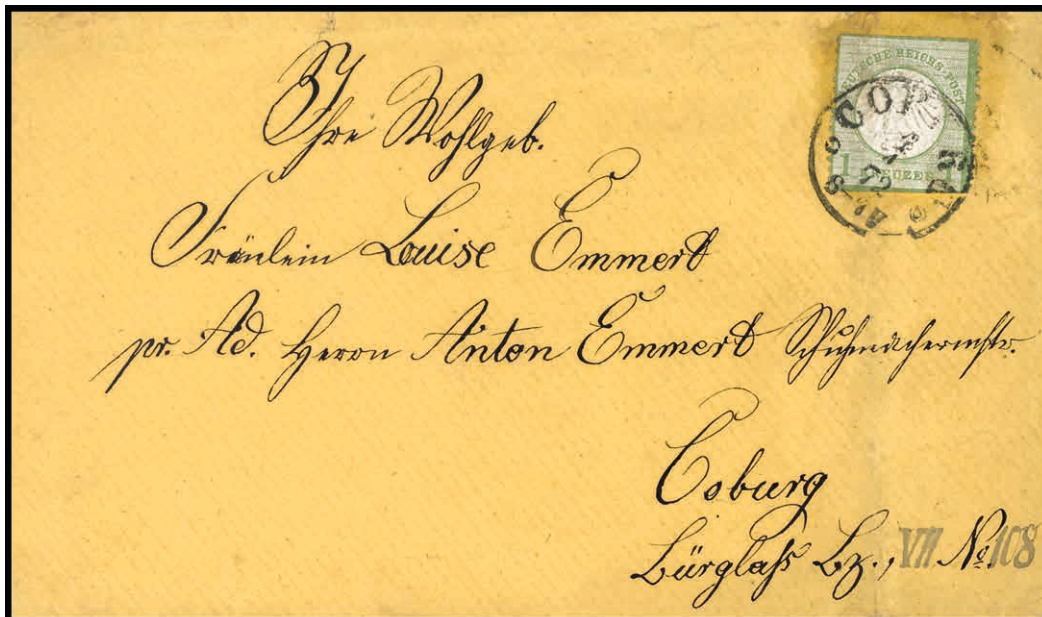 DEUTSCHE REICHS-POST
COB
1
Ihre Wohlgeb.
Fräulein Louise Emmert
pr. Ad. Herrn Anton Emmert Schuhmachermstr.
Coburg
Bürglaß Bz., VII No. 108